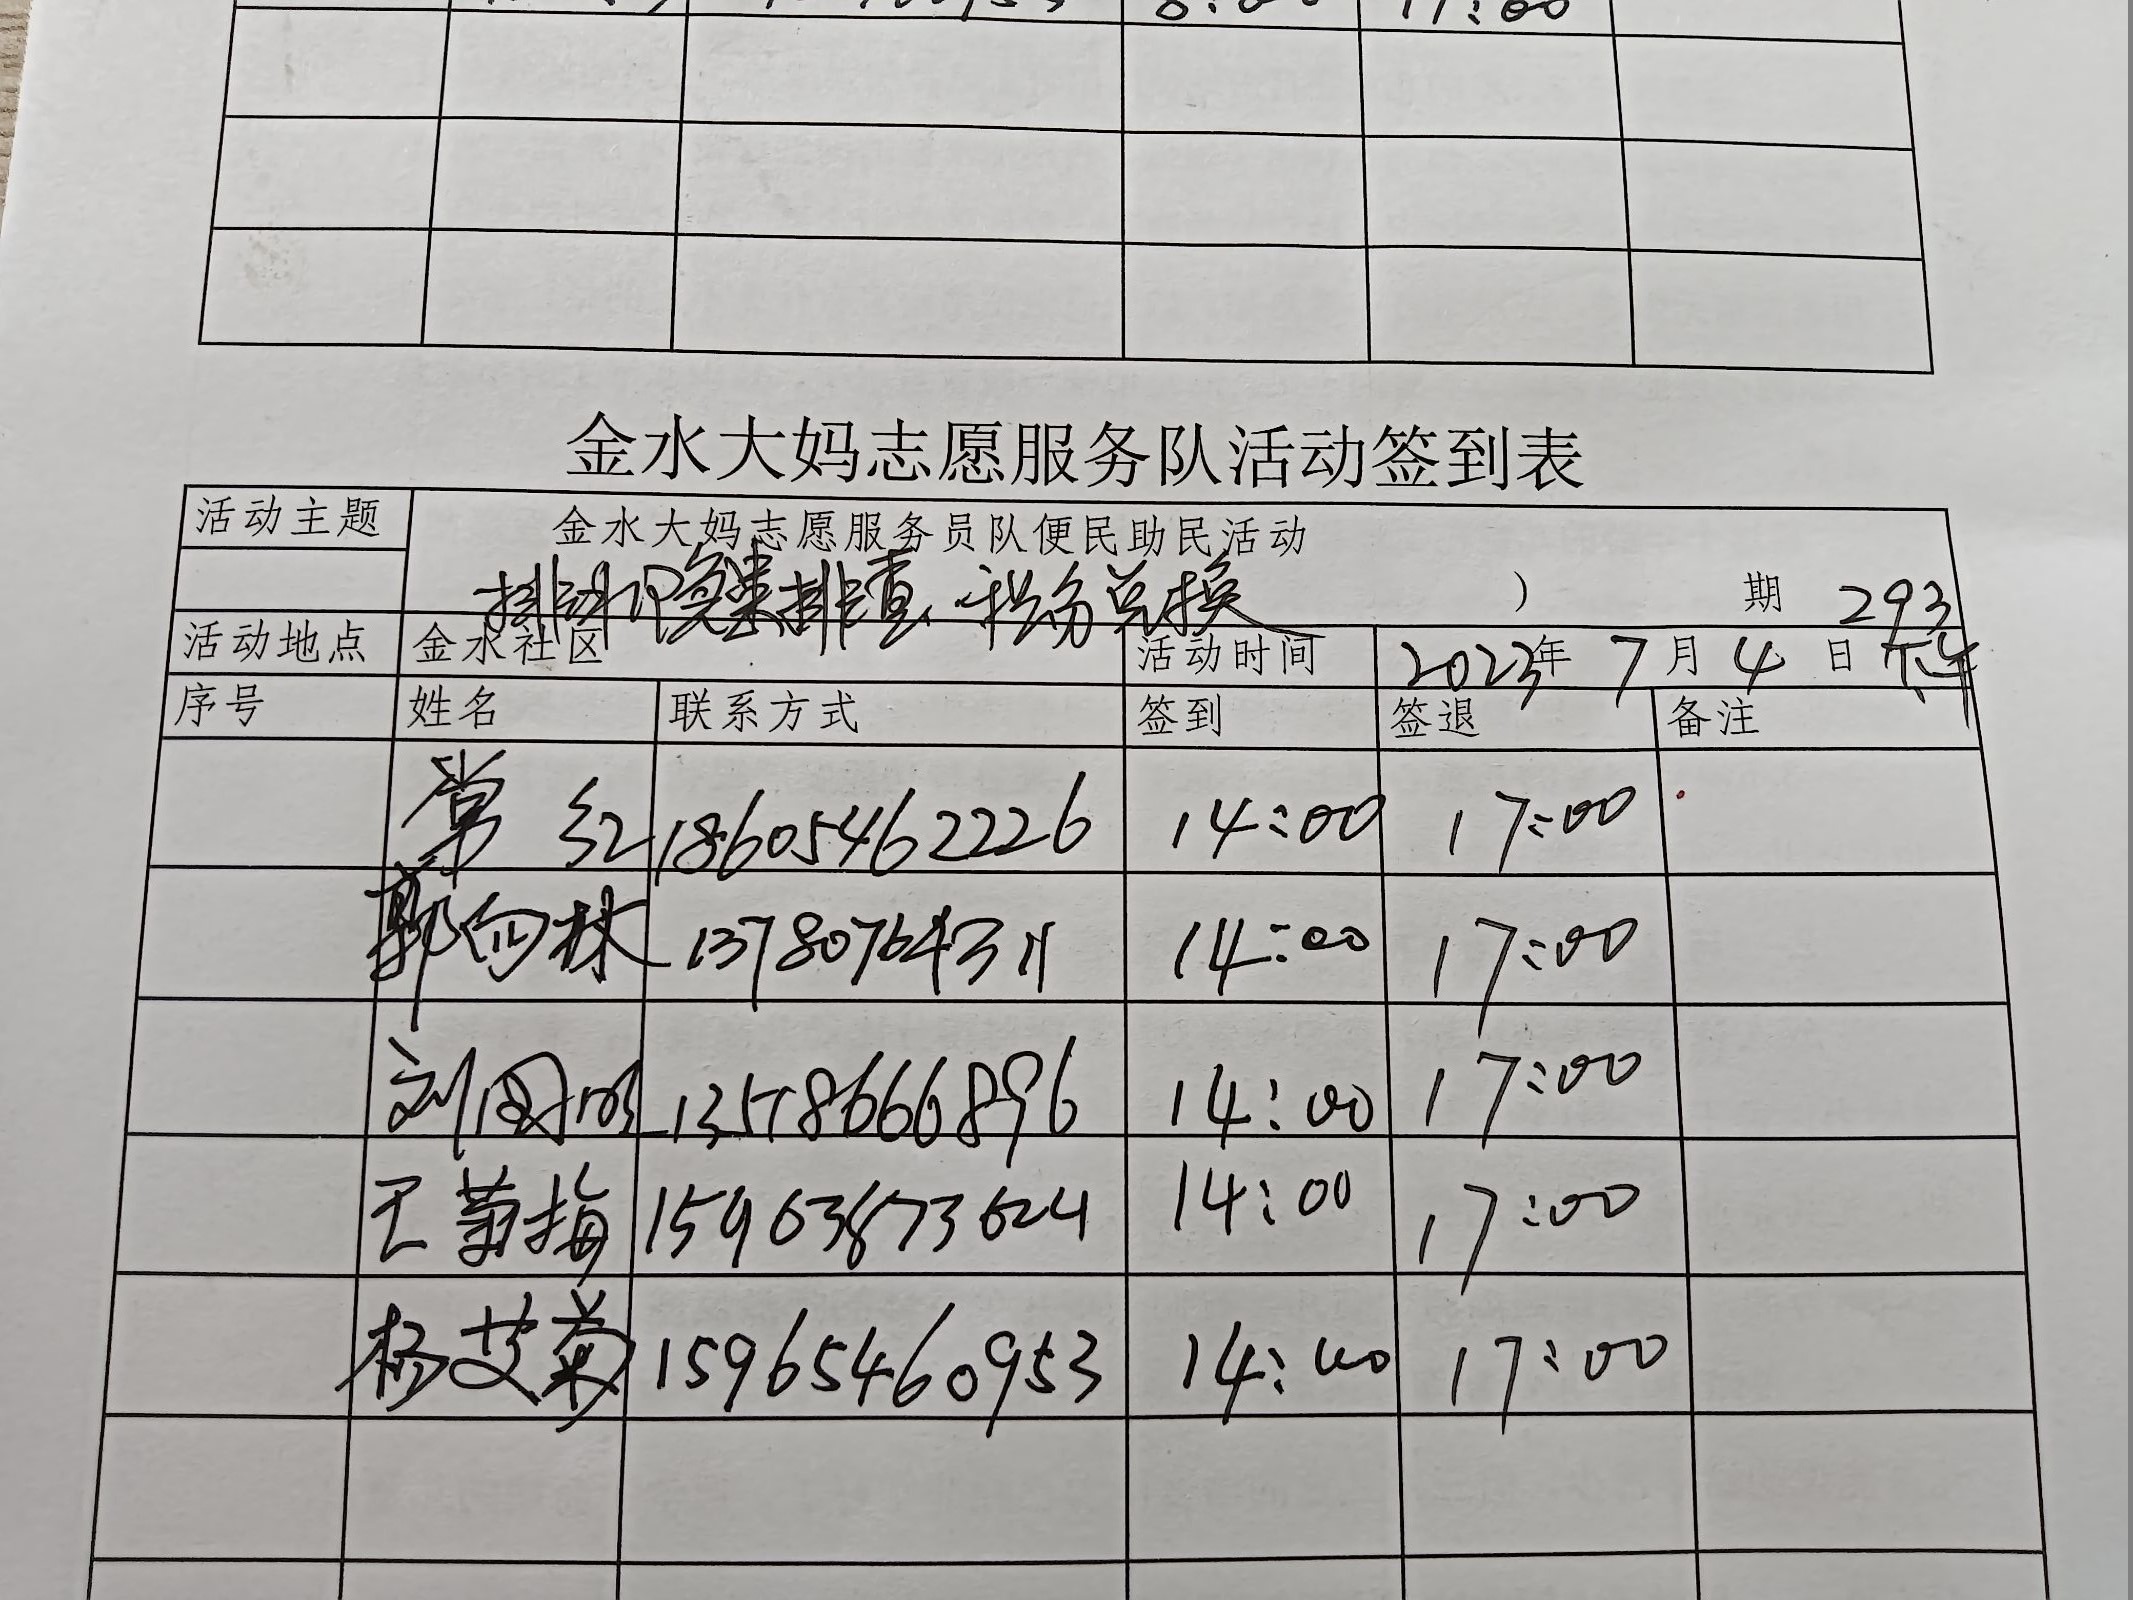 8:00 17:00
金水大妈志愿服务队活动签到表
活动主题 金水大妈志愿服务员队便民助民活动
排查、积分兑换 ） 期 293
活动地点 金水社区 活动时间 2023年 7月 4日 下午
序号 姓名 联系方式 签到 签退 备注
常红 18605462226 14:00 17:00
郭向林 13780764311 14:00 17:00
刘国明 8666896 14:00 17:00
王菊梅 15963873624 14:00 17:00
杨艾菊 15965460953 14:00 17:00